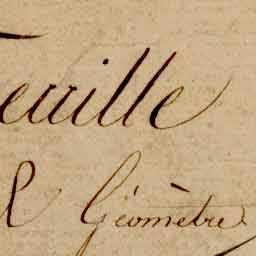 Feuille
& Géomètre